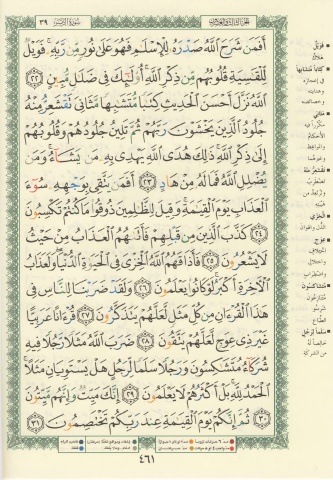 الجزء الثالث والعشرون
سورة الزمر ٣٩
أَفَمَن شَرَحَ ٱللَّهُ صَدْرَهُۥ لِلْإِسْلَٰمِ فَهُوَ عَلَىٰ نُورٍ مِّن رَّبِّهِۦ ۚ فَوَيْلٌ
لِّلْقَٰسِيَةِ قُلُوبُهُم مِّن ذِكْرِ ٱللَّهِ ۚ أُو۟لَٰٓئِكَ فِى ضَلَٰلٍ مُّبِينٍ ﴿٢٢﴾
ٱللَّهُ نَزَّلَ أَحْسَنَ ٱلْحَدِيثِ كِتَٰبًا مُّتَشَٰبِهًا مَّثَانِىَ تَقْشَعِرُّ مِنْهُ
جُلُودُ ٱلَّذِينَ يَخْشَوْنَ رَبَّهُمْ ثُمَّ تَلِينُ جُلُودُهُمْ وَقُلُوبُهُمْ
إِلَىٰ ذِكْرِ ٱللَّهِ ۚ ذَٰلِكَ هُدَى ٱللَّهِ يَهْدِى بِهِۦ مَن يَشَآءُ ۚ وَمَن
يُضْلِلِ ٱللَّهُ فَمَا لَهُۥ مِنْ هَادٍ ﴿٢٣﴾ أَفَمَن يَتَّقِى بِوَجْهِهِۦ سُوٓءَ
ٱلْعَذَابِ يَوْمَ ٱلْقِيَٰمَةِ ۚ وَقِيلَ لِلظَّٰلِمِينَ ذُوقُوا۟ مَا كُنتُمْ تَكْسِبُونَ
﴿٢٤﴾ كَذَّبَ ٱلَّذِينَ مِن قَبْلِهِمْ فَأَتَىٰهُمُ ٱلْعَذَابُ مِنْ حَيْثُ
لَا يَشْعُرُونَ ﴿٢٥﴾ فَأَذَاقَهُمُ ٱللَّهُ ٱلْخِزْىَ فِى ٱلْحَيَوٰةِ ٱلدُّنْيَا ۖ وَلَعَذَابُ
ٱلْءَاخِرَةِ أَكْبَرُ ۚ لَوْ كَانُوا۟ يَعْلَمُونَ ﴿٢٦﴾ وَلَقَدْ ضَرَبْنَا لِلنَّاسِ فِى
هَٰذَا ٱلْقُرْءَانِ مِن كُلِّ مَثَلٍ لَّعَلَّهُمْ يَتَذَكَّرُونَ ﴿٢٧﴾ قُرْءَانًا عَرَبِيًّا
غَيْرَ ذِى عِوَجٍ لَّعَلَّهُمْ يَتَّقُونَ ﴿٢٨﴾ ضَرَبَ ٱللَّهُ مَثَلًا رَّجُلًا فِيهِ
شُرَكَآءُ مُتَشَٰكِسُونَ وَرَجُلًا سَلَمًا لِّرَجُلٍ هَلْ يَسْتَوِيَانِ مَثَلًا ۚ
ٱلْحَمْدُ لِلَّهِ ۚ بَلْ أَكْثَرُهُمْ لَا يَعْلَمُونَ ﴿٢٩﴾ إِنَّكَ مَيِّتٌ وَإِنَّهُم مَّيِّتُونَ
﴿٣٠﴾ ثُمَّ إِنَّكُمْ يَوْمَ ٱلْقِيَٰمَةِ عِندَ رَبِّكُمْ تَخْتَصِمُونَ ﴿٣١﴾
فَوَيْلٌ
هلاك
كتاباً متشابهاً
في إعجازه
وهدايته
وخصائصه
مثاني
تقشعر منه
الخزي
الذل والهوان
عوج
متشاكسون
سلماً لرجل
خالصاً له
من الشركة
٤٦١